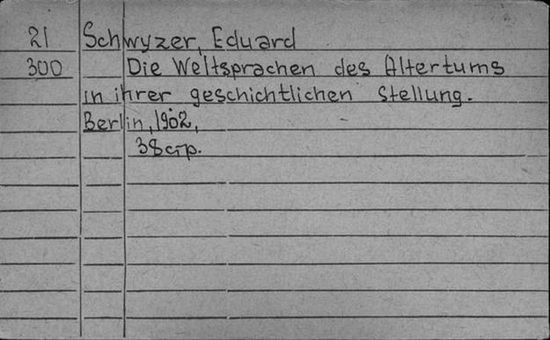 21 Schwyzer, Eduard
300 Die Weltsprachen des Altertums
in ihrer geschichtlichen Stellung.
Berlin, 1902,
38 стр.